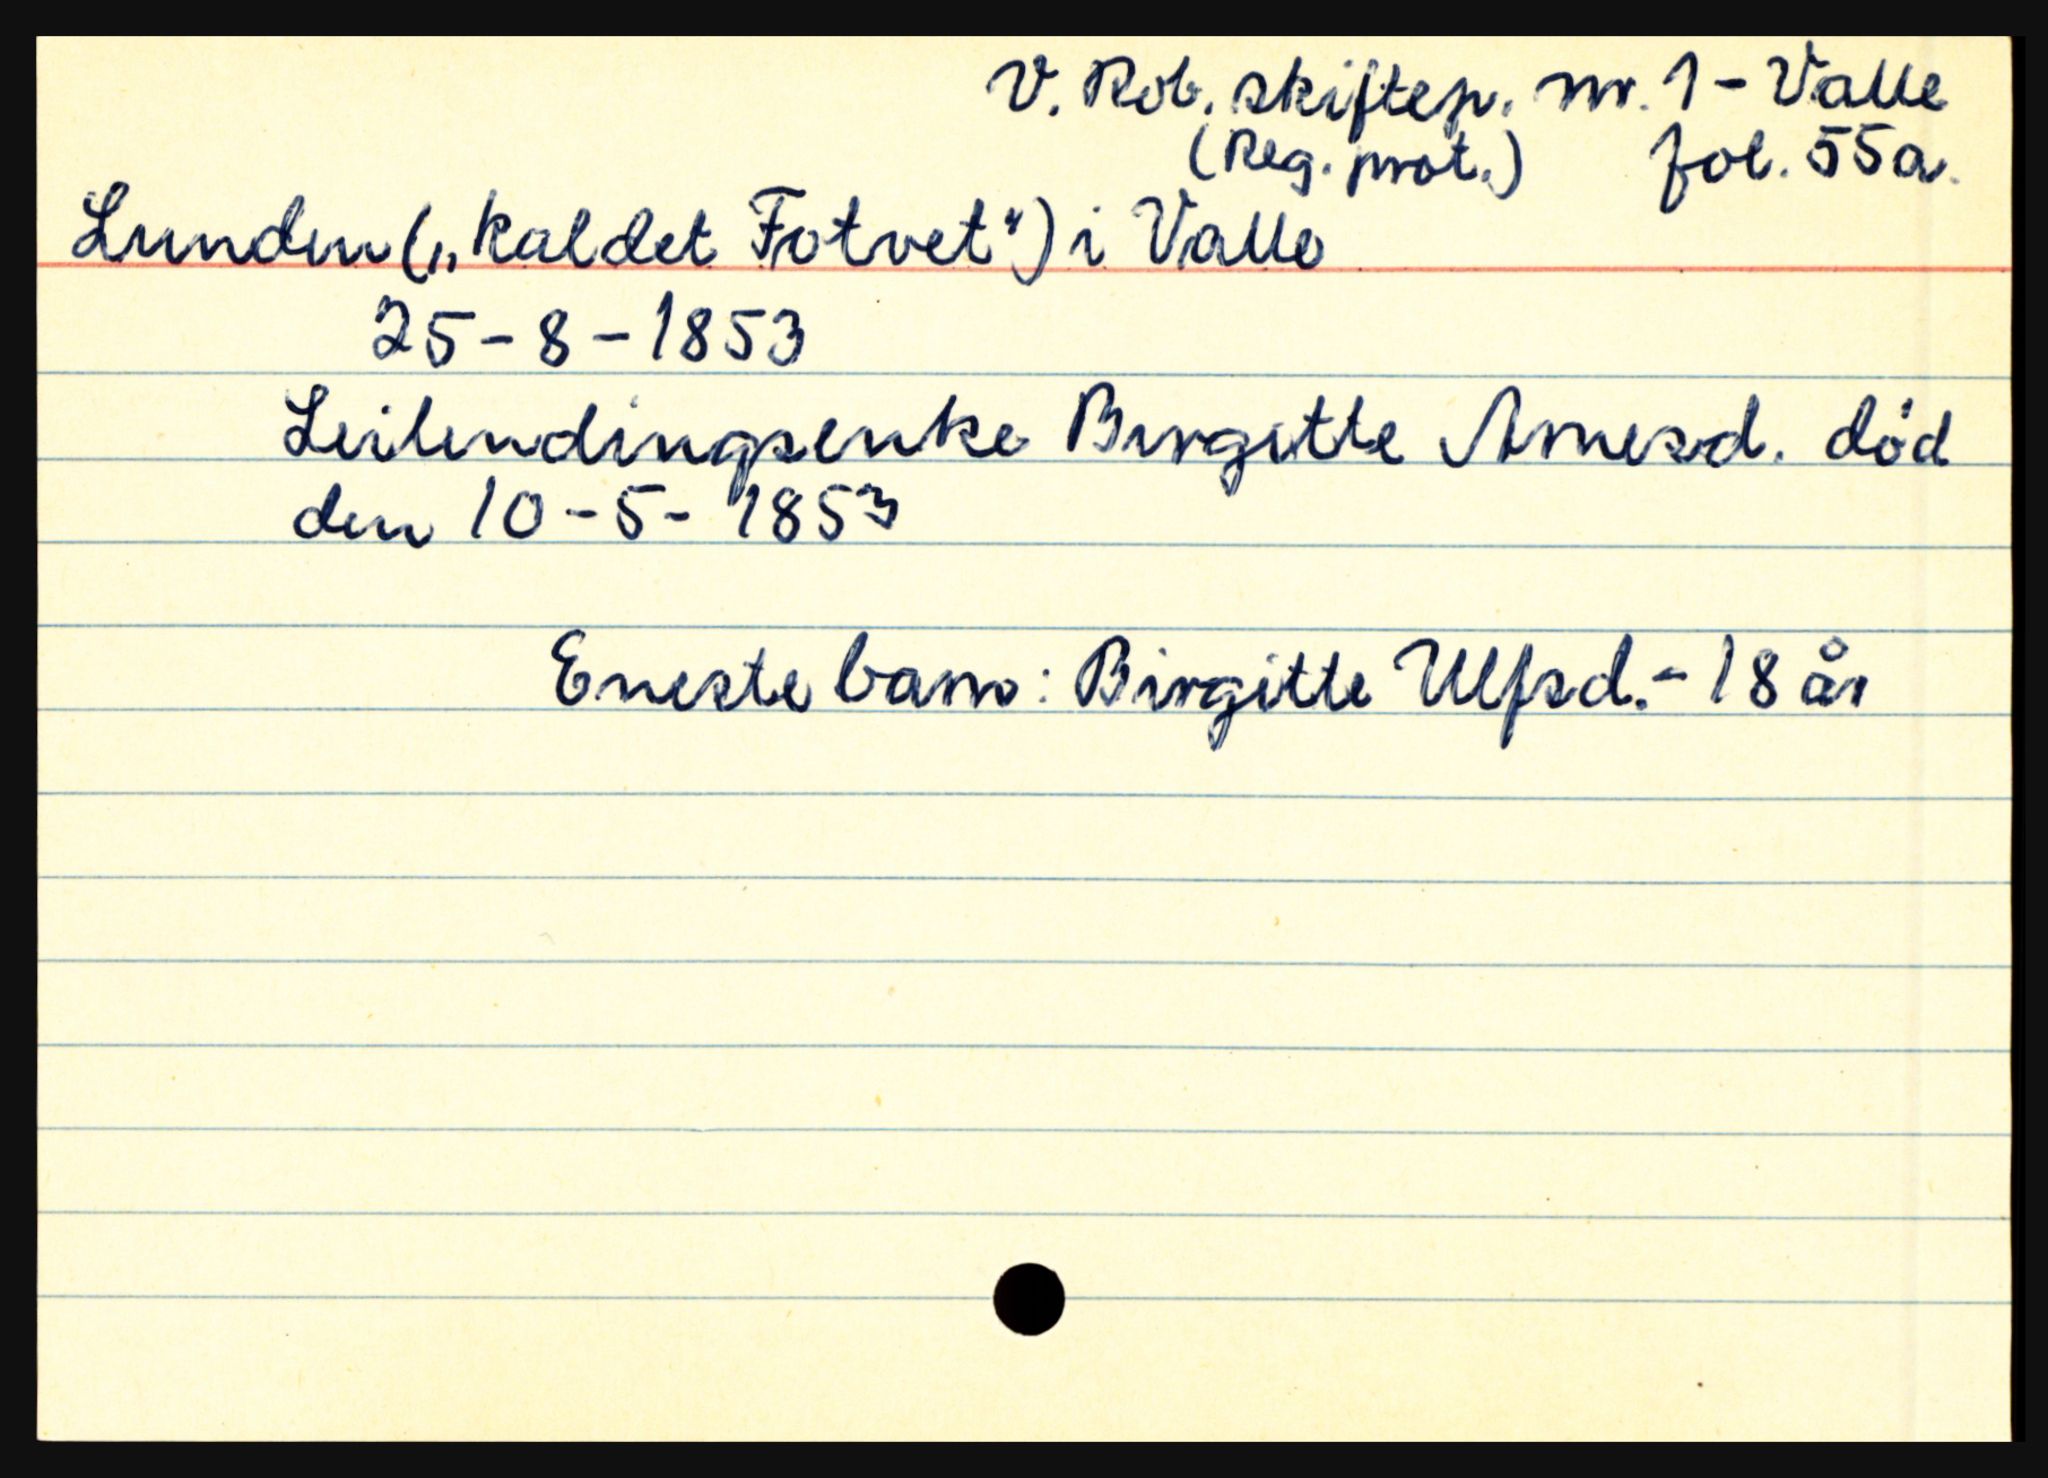 V. Rob. skiftep. nr. 1 - Valle
(Reg. prot.) fol. 55a.
Lunden („kaldet Fotvet") i Valle
25-8-1853
Leilendingsenke Birgitte Arnesd. død
den 10-5-1853
Eneste barn: Birgitte Ulfsd. - 18 år